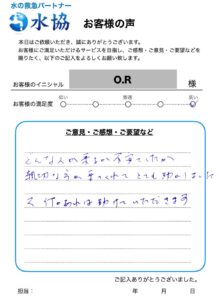 水の救急パートナー
水協 お客様の声
本日はご依頼いただき、誠にありがとうございます。
お客様にご満足いただけるサービスを目指し、ご感想・ご意見・ご要望などを
賜りたく、以下のご記入をよろしくお願い致します。
お客様のイニシャル O.R 様
低い 普通 高い
お客様の満足度
ご意見・ご感想・ご要望など
どんな人が来るか不安でしたが
親切な方が来てくれて とても助かりました
又 何かあれば助けていただきます
ご記入ありがとうございました。
担当: 年 月 日